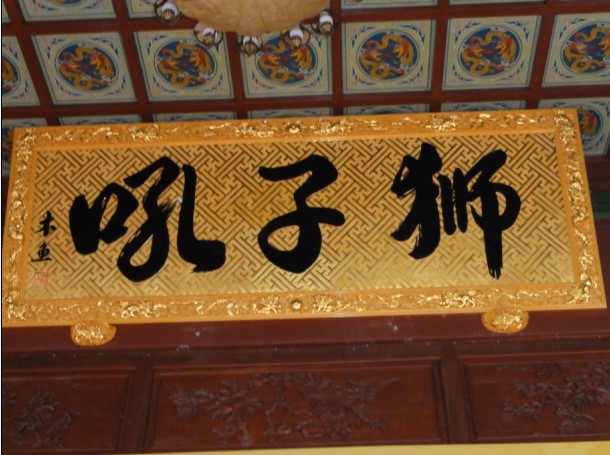 狮子吼